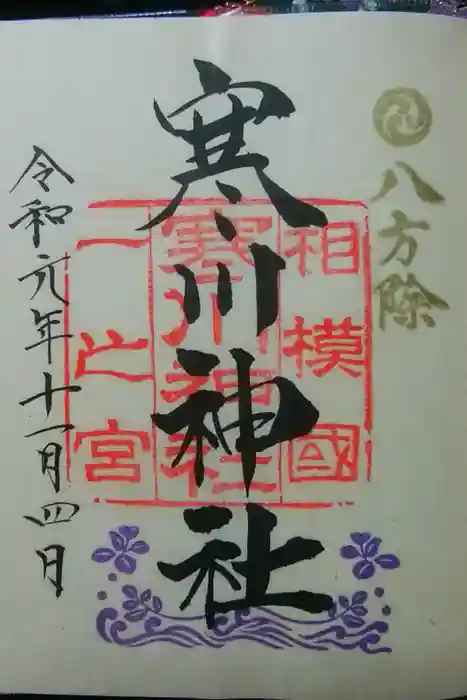 八方除
相模國
寒川神社
一之宮
寒川神社
令和元年十一月四日